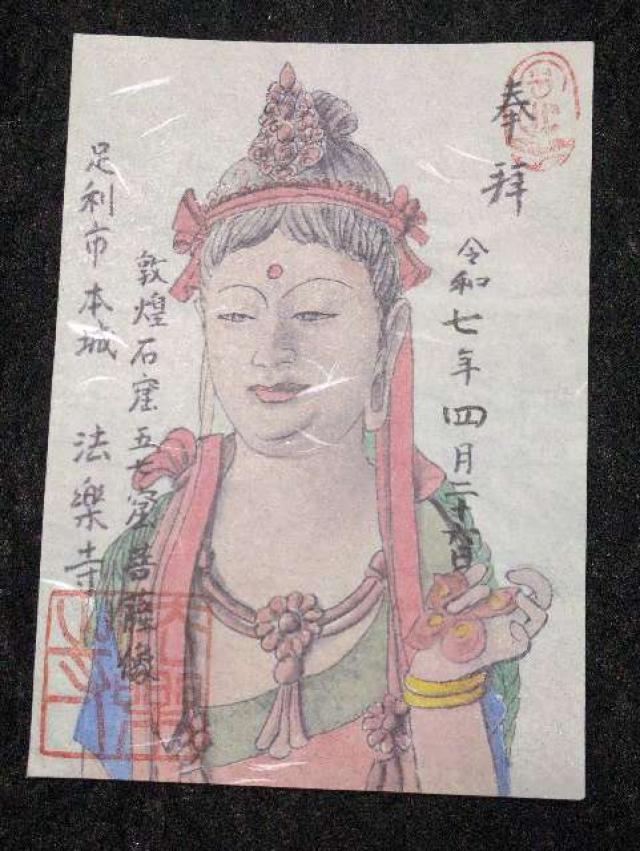 奉拜
令和七年四月二十六日
敦煌石窟五七窟菩薩像
足利市本城 法樂寺